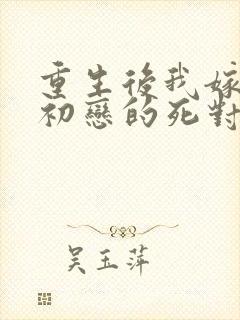 重生後我嫁
初戀的死對
吳玉萍